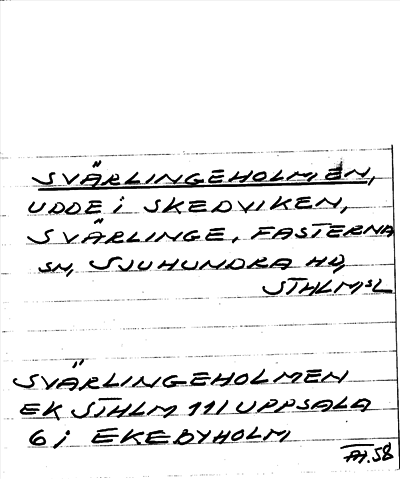 SVÄRLINGEHOLMEN,
UDDE i SKEDVIKEN,
SVÄRLINGE, FASTERNA
SN, SJUHUNDRA HD,
STHLMSL
SVÄRLINGEHOLMEN
EK STHLM 111 UPPSALA
6 i EKEBYHOLM
58